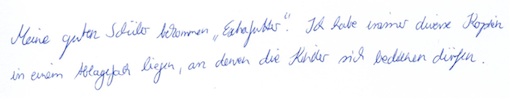 Meine guten Schüler bekommen „Extrafutter“. Ich habe immer diverse Kopien
in einem Ablagefach liegen, an denen die Kinder sich bedienen dürfen.